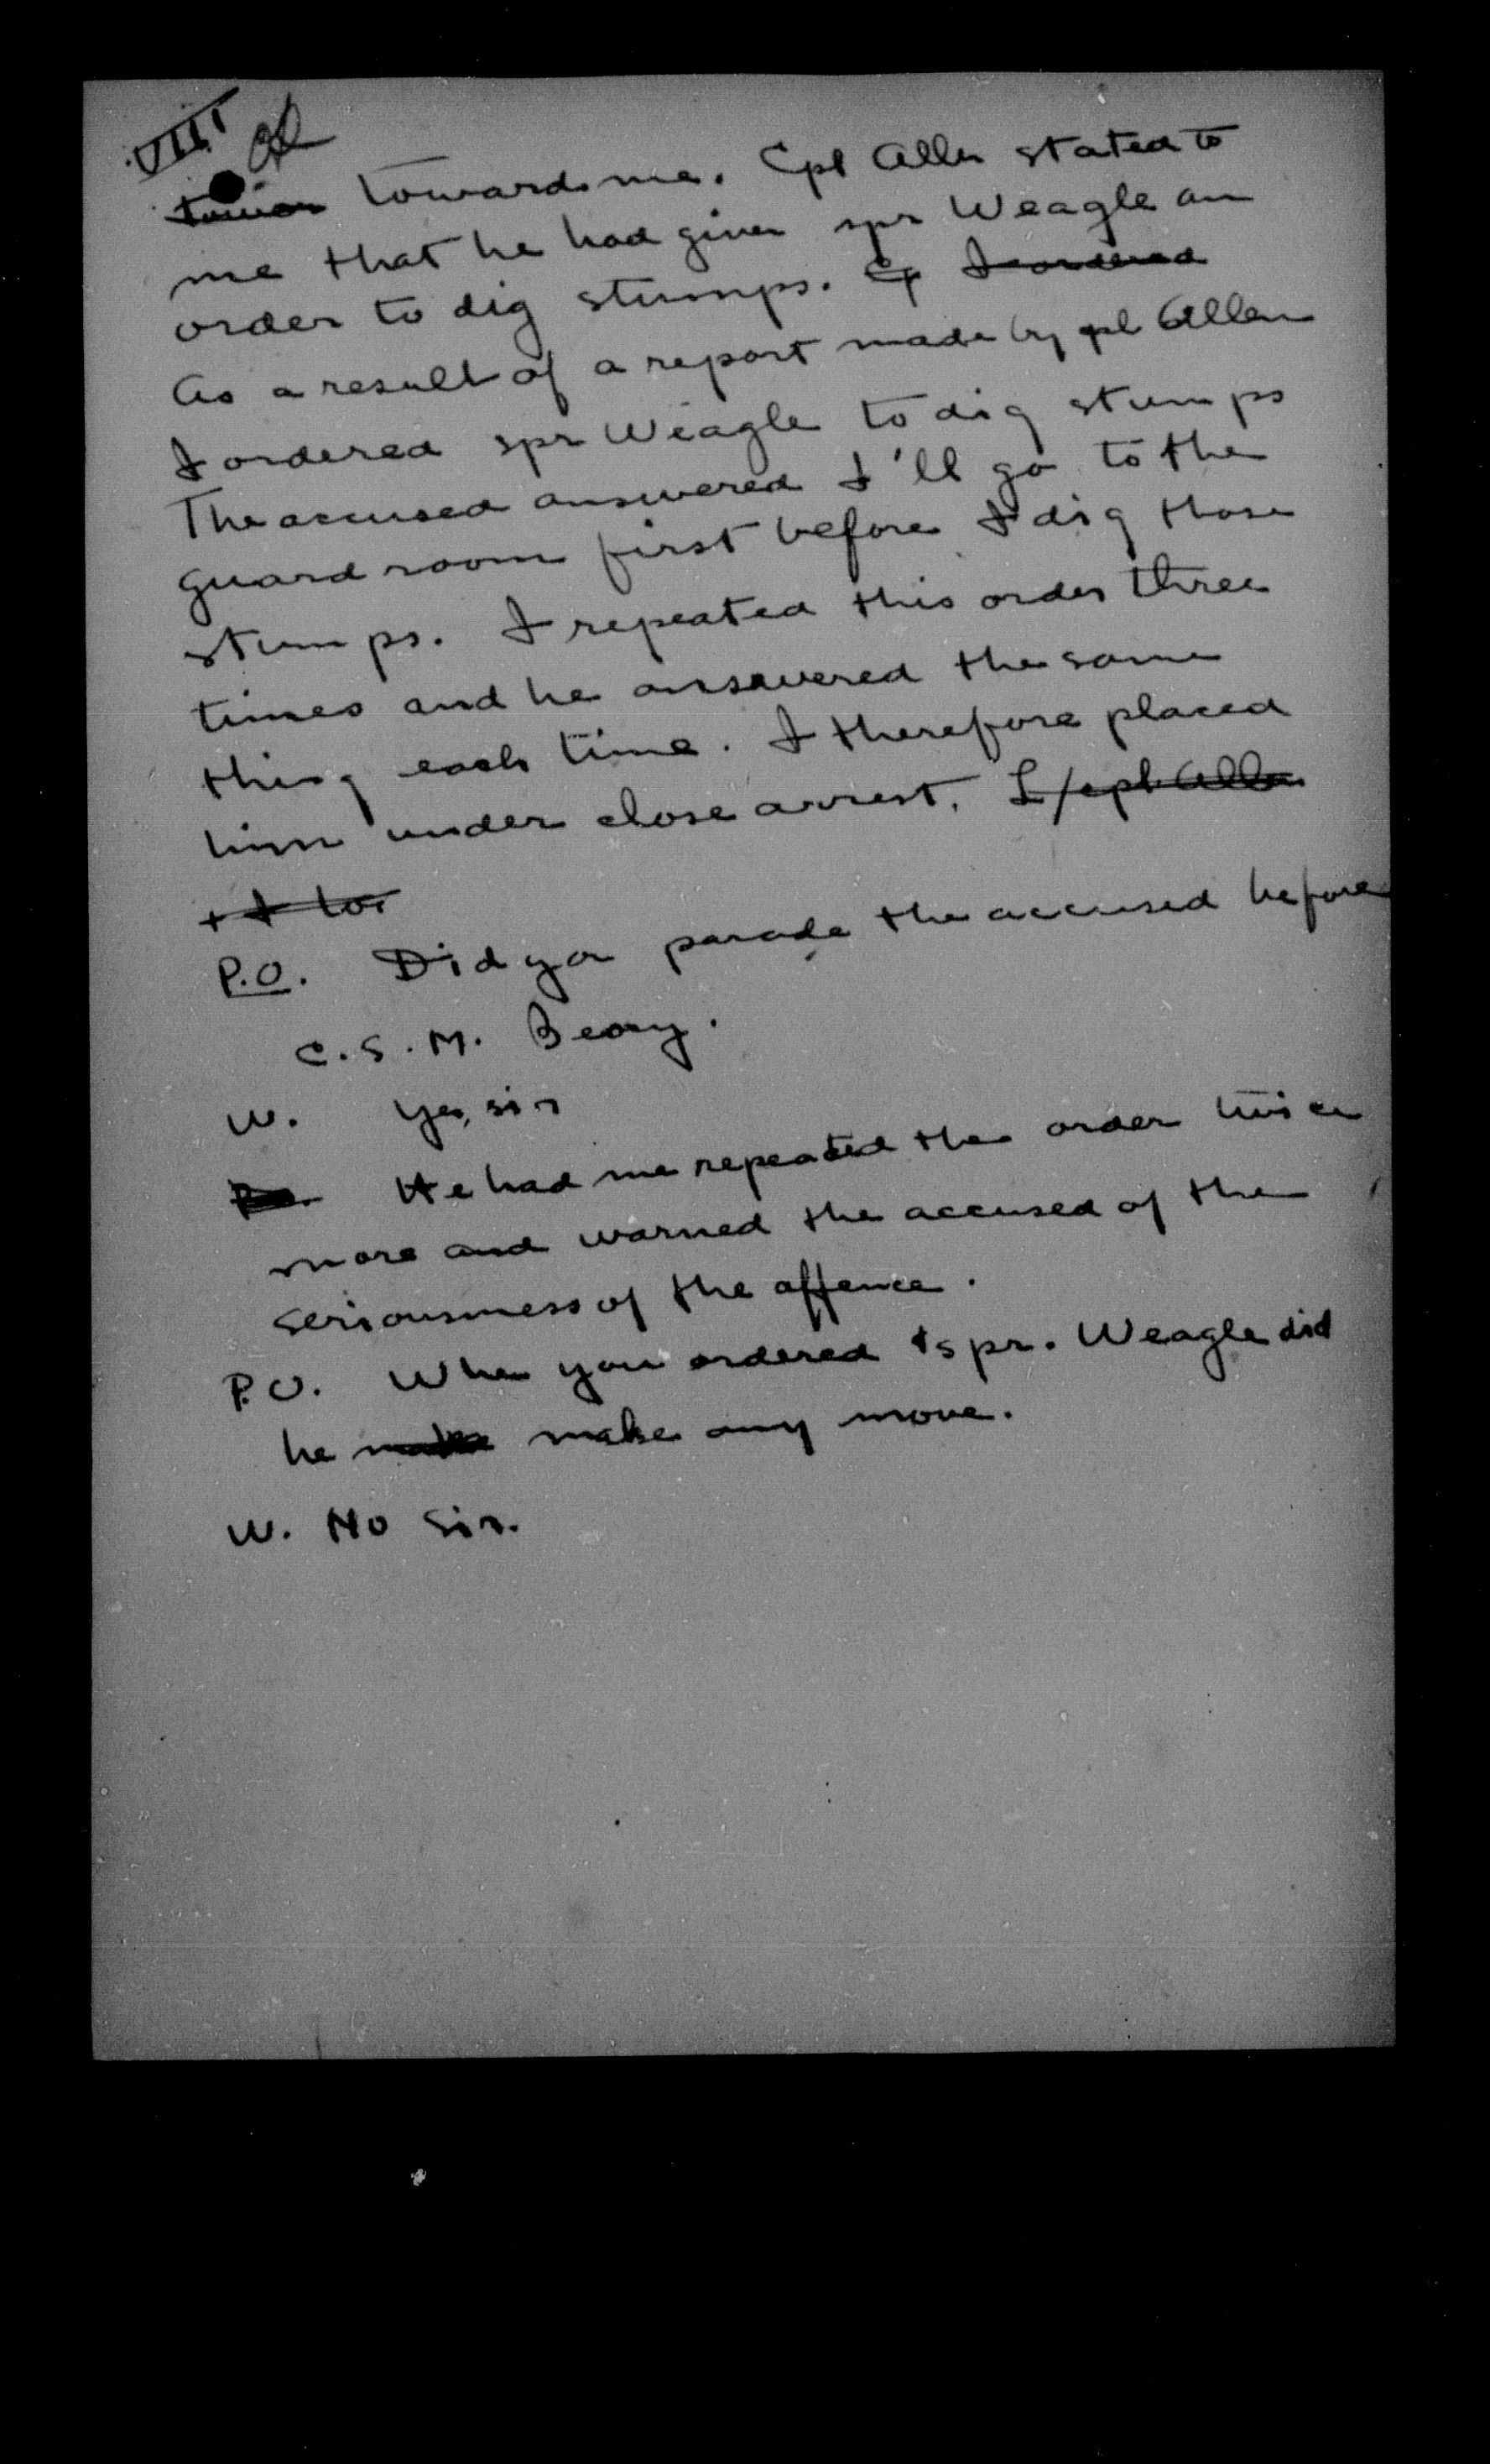 VIII
towards me. Cpl Allen stated to
me that he had given spr Weagle an
order to dig stumps. Cp I ordered
As a result of a report made by cpl Allen
I ordered spr Weagle to dig stumps
The accused answered I'll go to the
guard room first before I dig those
stumps. I repeated this order three
times and he answered the same
thing each time. I therefore placed
him under close arrest. L/cpl Allen
P.O. Did you parade the accused before
C.S.M. Beary.
W. Yes, sir
He had me repeated the order twice
more and warned the accused of the
seriousness of the offence.
P.O. When you ordered spr. Weagle did
he make make any move.
W. No Sir.